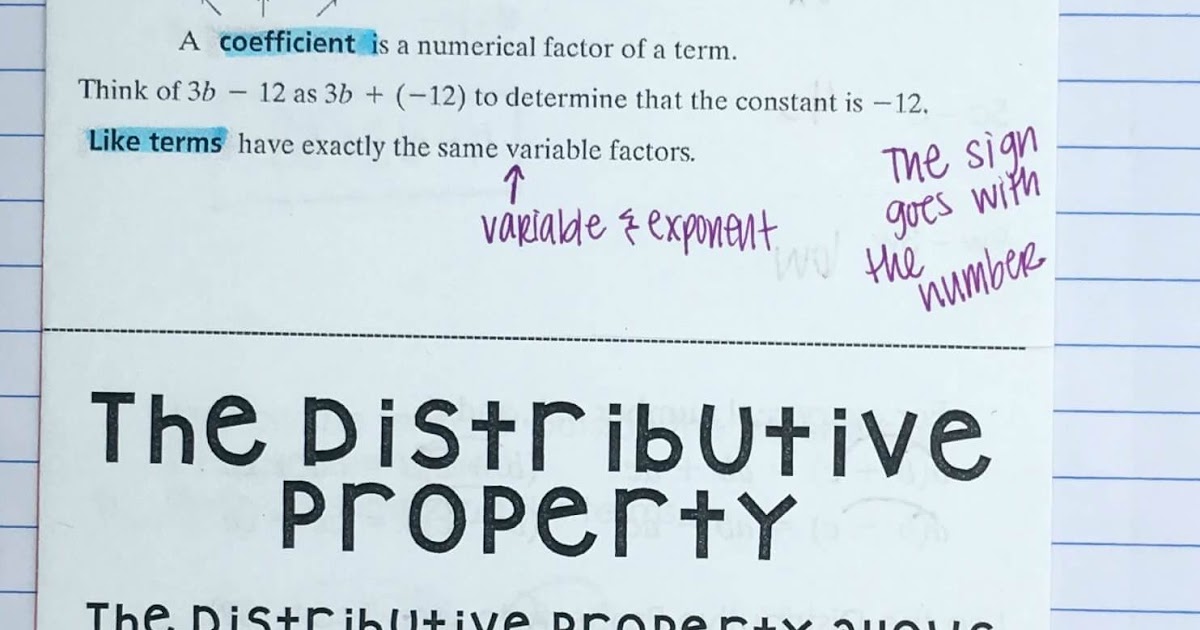 A coefficient is a numerical factor of a term.
Think of 3b − 12 as 3b + (−12) to determine that the constant is −12.
Like terms have exactly the same variable factors.
↑
variable & exponent
The sign
goes with
the
number
The Distributive
Property
The Distributive Property